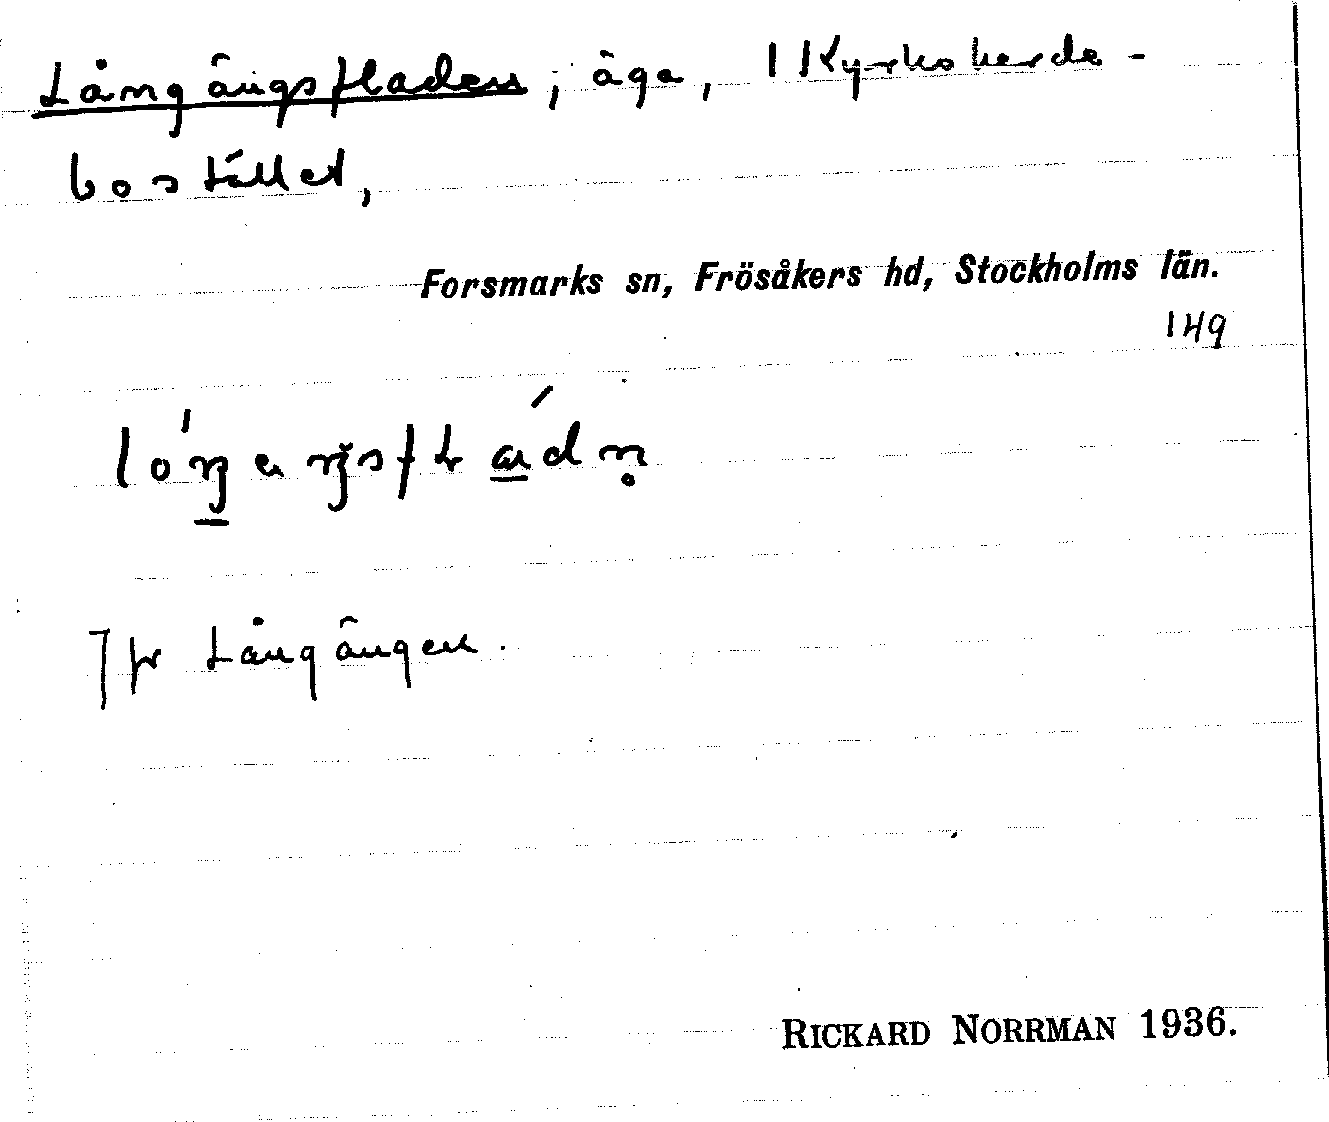 Långängsfladen, äga, 1 Kyrkoherde-
bostället,
Forsmarks sn, Frösåkers hd, Stockholms län.
149
Jfr Långängen.
RICKARD NORRMAN 1936.